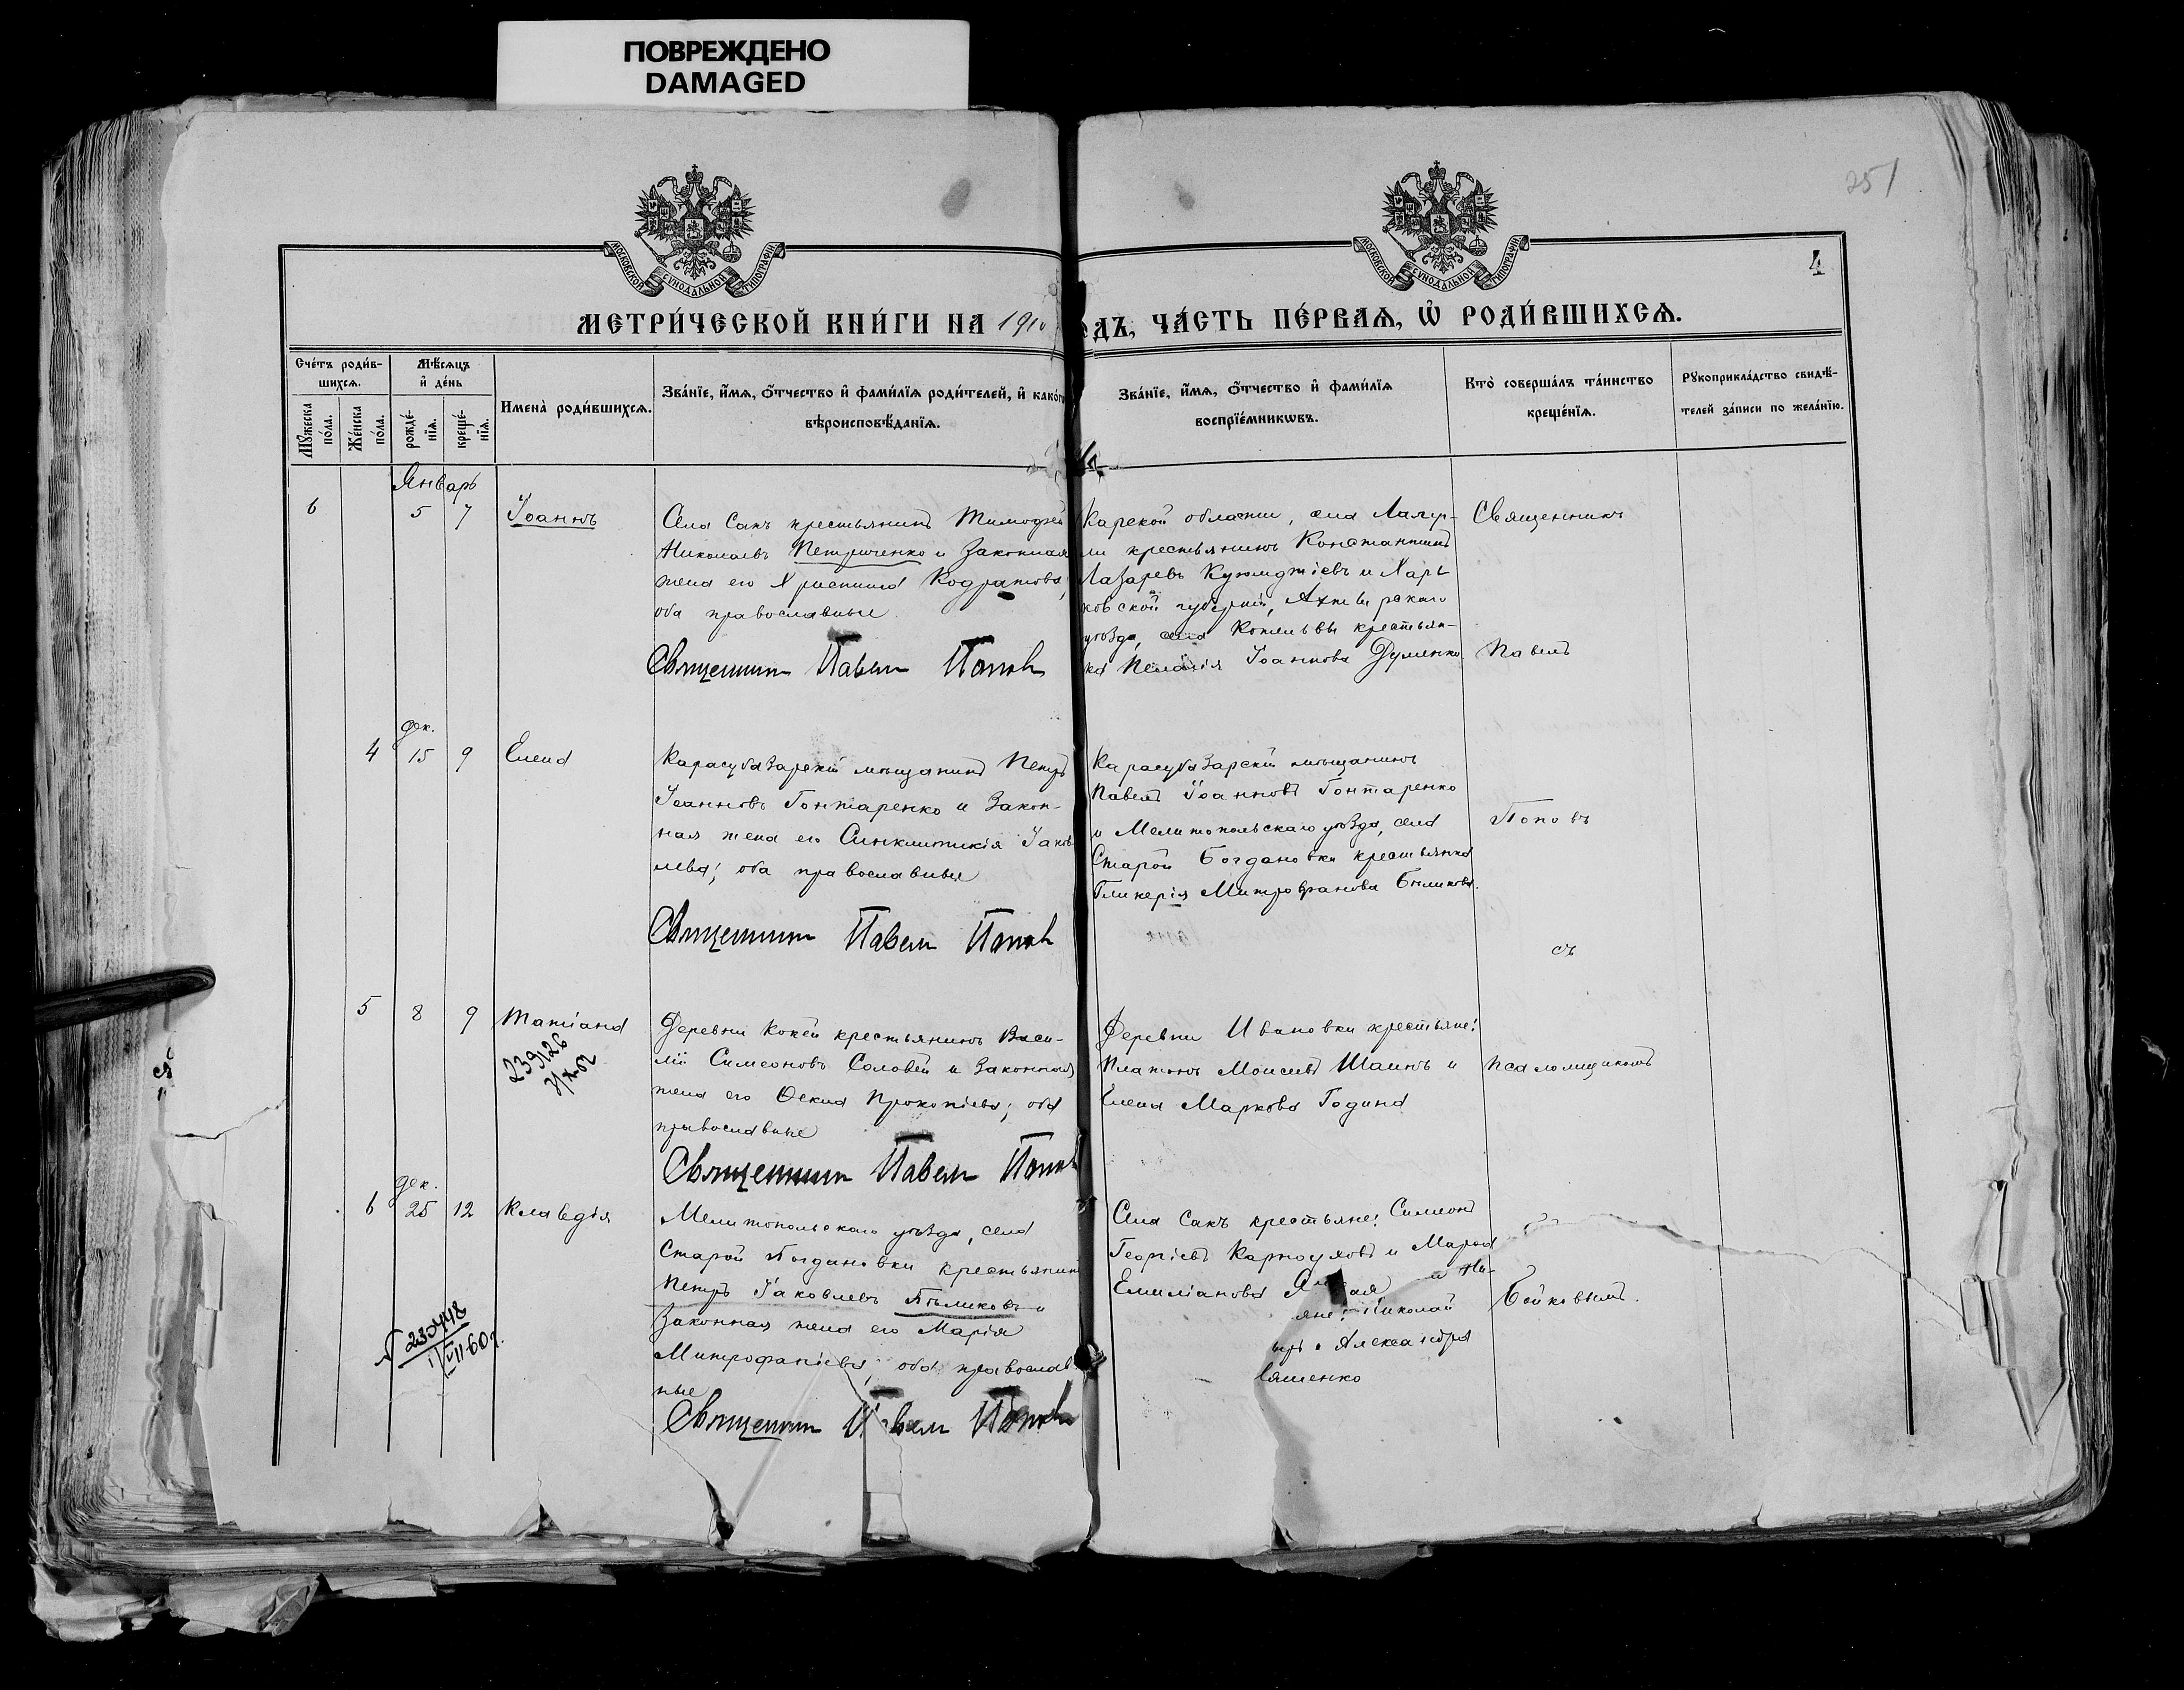 ПОВРЕЖДЕНО
DAMAGED
251
4
МОСКОВСКОЙ СѴНОДАЛЬНОЙ ТИПОГРАФІИ
МОСКОВСКОЙ СѴНОДАЛЬНОЙ ТИПОГРАФІИ
МЕТРИ́ЧЕСКОЙ КНИ́ГИ НА 1910
ДЪ, ЧА́СТЬ ПЕ́РВАѦ, Ѡ҆ РОДИ́ВШИХСѦ.
Сче́тъ роди́в-
шихсѧ.
Мѣ́сѧцъ
и҆ де́нь
Мꙋ́жеска по́ла.
Же́нска по́ла.
рожде́-
нїѧ.
креще́-
нїѧ.
Имена̀ роди́вшихсѧ.
Зва́нїе, и҆́мѧ, ѻ҆́тчество и҆ фами́лїѧ роди́телей, и҆ како́гѡ
вѣроисповѣ́данїѧ.
Зва́нїе, и҆́мѧ, ѻ҆́тчество и҆ фами́лїѧ
воспрїе́мникѡвъ.
Кто̀ соверша́лъ та́инство
креще́нїѧ.
Рꙋкоприкла́дство свидѣ́-
телей за́писи по жела́нїю.
Январь
6 5 7 Іоаннъ
Села Сакъ крестьянинъ Тимофей
Николаевъ Петриченко и законная
жена его Христина Кодратова,
оба православные
Священник Павел Попов
Карской области, села
ли крестьянинъ Константинъ
Лазаревъ Куюмджіевъ и Харь
ковской губерніи, Ахтырскаго
уѣзда, села Котельвы крестьян-
ка Пелагія Іоаннова Думенко.
Священникъ
Павелъ
дек.
4 15 9 Елена
Карасубазарскій мѣщанинъ Петръ
Іоанновъ Гонтаренко и закон-
ная жена его Синклитикія Іаков-
лева; оба православные
Священник Павел Попов
Карасубазарскій мѣщанинъ
Павелъ Іоанновъ Гонтаренко
и Мелитопольскаго уѣзда, села
Старой Богдановки крестьянка
Гликерія Митрофанова Бѣликова.
Поповъ
съ
5 8 9 Татіана
239126
Деревни Кокей крестьянинъ Васи-
лій Симеоновъ Соловей и законная
жена его Ѳекла Прокопіева; оба
православные
Священник Павел Попов
Деревни Ивановки крестьяне:
Платонъ Моисеевъ Шаинъ и
Елена Маркова Година
псаломщикомъ
дек.
6 25 12 Клавдія
230448
VII 60г.
Мелитопольскаго уѣзда, села
Старой Богдановки крестьянин
Петръ Іаковлевъ Бѣликовъ и
законная жена его Марія
Митрофаніева; оба православ-
ные
Священник Павел Попов
Села Сакъ крестьяне: Симеонъ
Георгіевъ Карноуховъ и Марѳа
Емиліанова
яне: Николай
Александра
ляшенко
Бойковымъ.